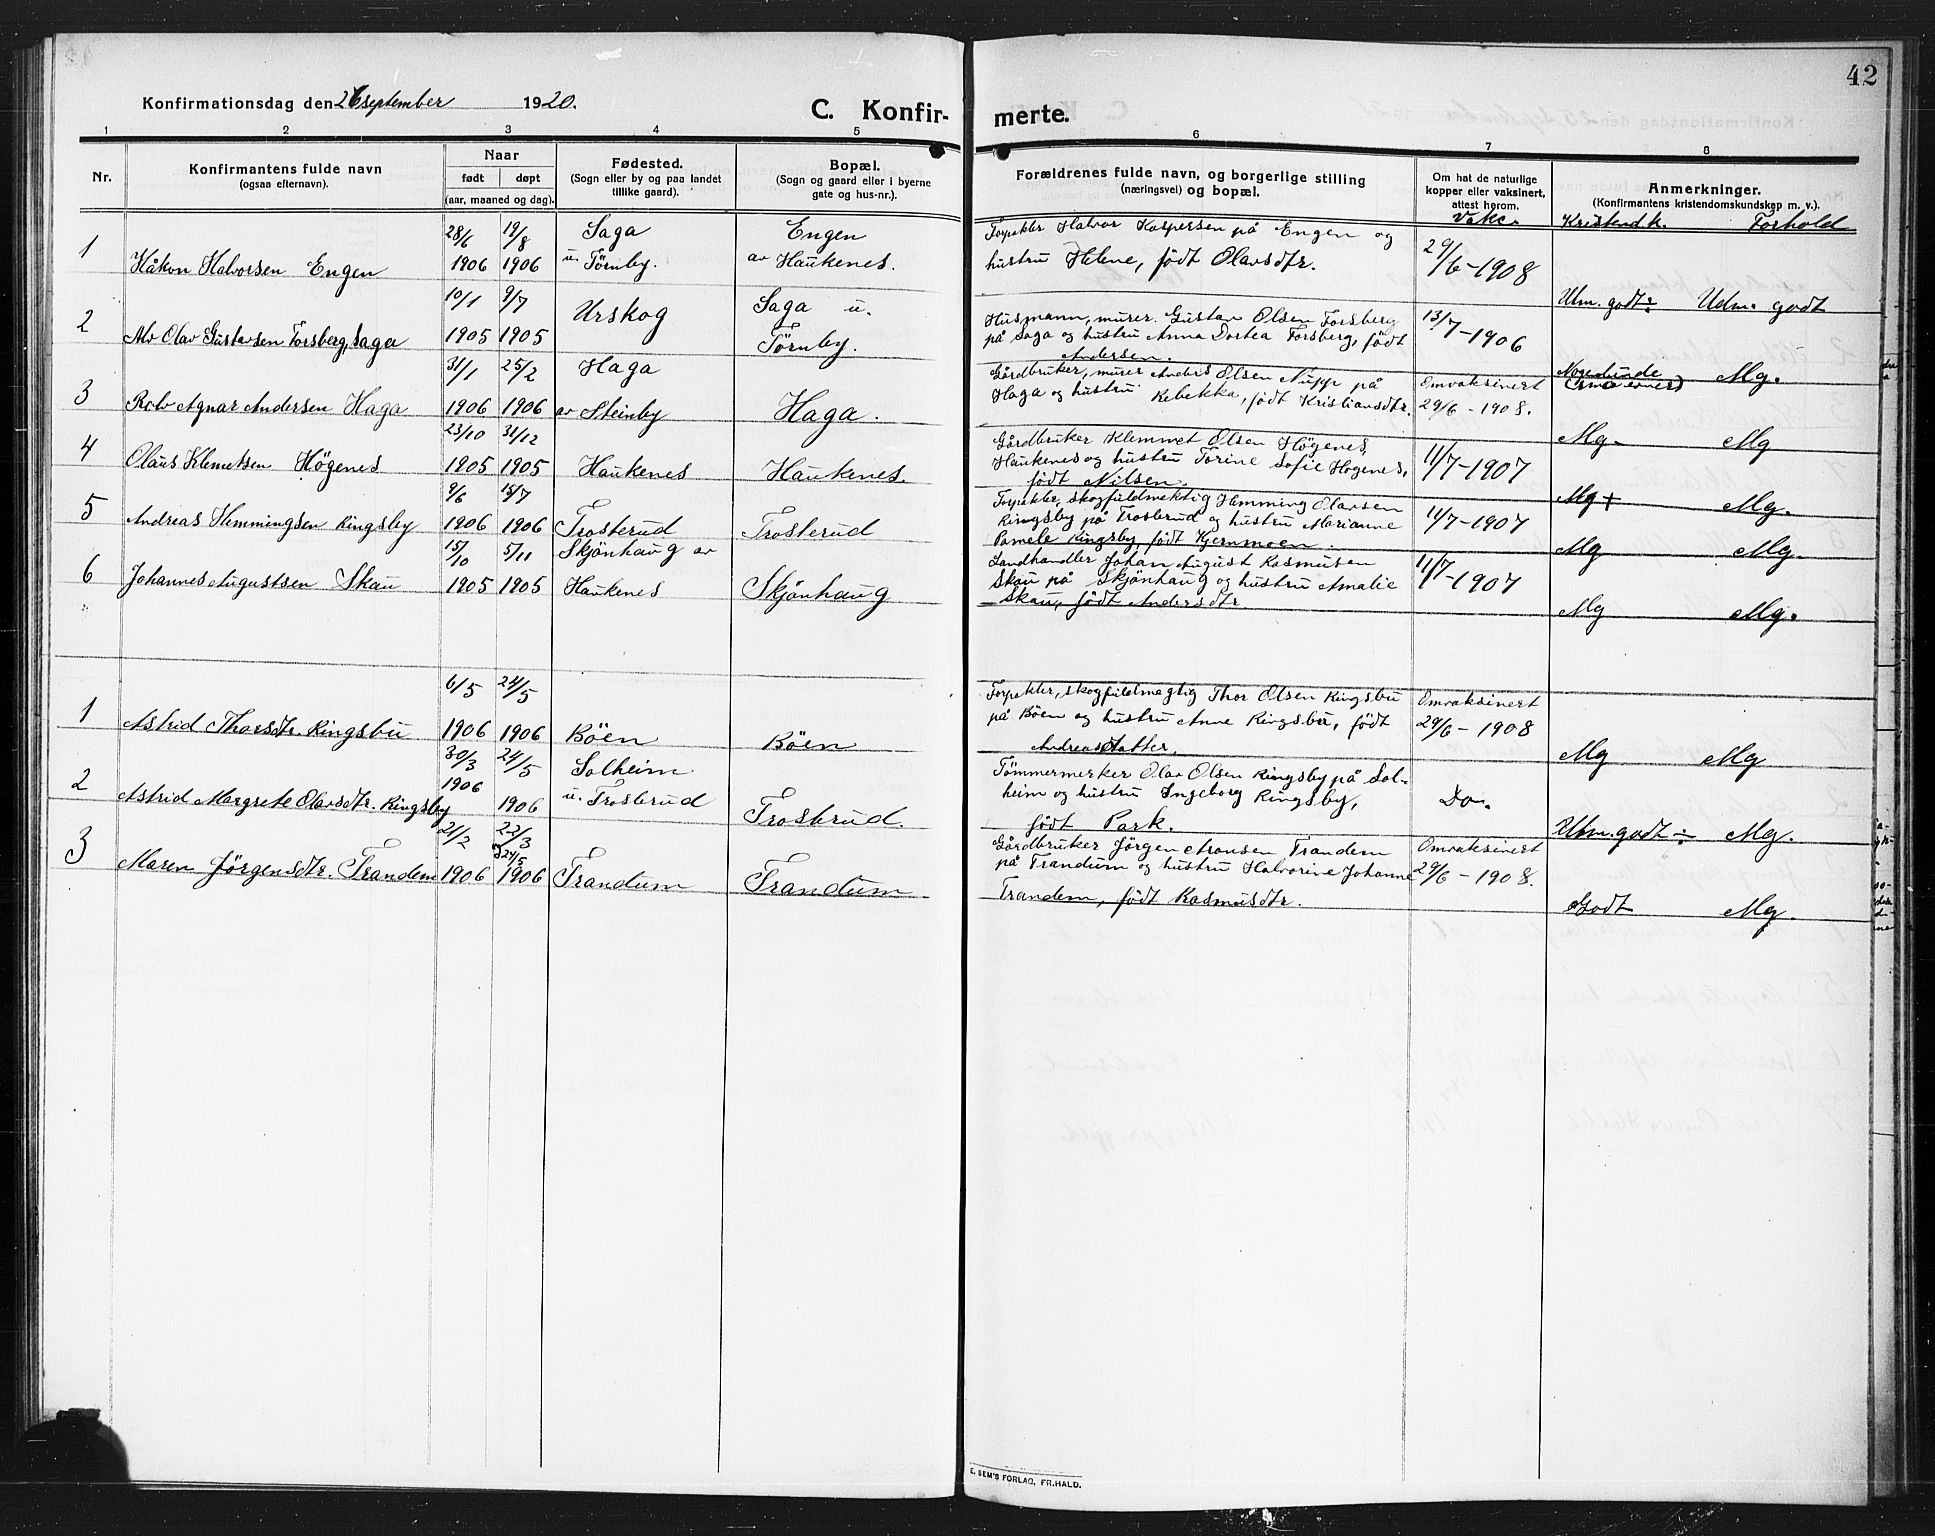 42
Konfirmationsdag den 26 september 1920.
C. Konfir-
merte.
1 2 3 4 5 6 7 8
Nr.
Konfirmantens fulde navn
(ogsaa efternavn).
Naar
født døpt
(aar, maaned og dag).
Fødested.
(Sogn eller by og paa landet
tillike gaard).
Bopæl.
(Sogn og gaard eller i byerne
gate og hus-nr.).
Forældrenes fulde navn, og borgerlige stilling
(næringsvei) og bopæl.
Om hat de naturlige
kopper eller vaksinert,
attest herom.
Vakc.
Anmerkninger.
(Konfirmantens kristendomskundskap m. v.).
Kristend.k. Forhold
1
Håkon Halvorsen Engen
28/6 1906
19/8 1906
Saga
u. Törnby.
Engen
av Haukenes.
Forpakter Halvor Kaspersen på Engen og
hustru Helene, födt Olavsdtr.
29/6-1908
Utm. godt÷ Udm. godt
2
Alv Olav Gustavsen Forsberg, Saga
10/1 1905
9/7 1905
Urskog
Saga u.
Törnby.
Husmann, murer Gustav Olsen Forsberg
på Saga og hustru Anna Dortea Forsberg, födt
Andersen.
13/7-1906
Mg.
3
Rolv Agnar Andersen Haga
31/1 1906
25/2 1906
Haga
av Steinby
Haga.
Gårdbruker, murer Anders Olsen Nupp på
Haga og hustru Rebekka, födt Kristiansdtr.
Omvaksinert
29/6-1908.
Mg. Mg
4
Olaus Klemetsen Högenes
23/10 1905
31/12 1905
Haukenes
Haukenes.
Gårdbruker Klemmet Olsen Högenes,
Haukenes og hustru Torine Sofie Högenes,
födt Nilsen.
11/7-1907
Mg+ Mg.
5
Andreas Hemmingsen Ringsby
9/6 1906
15/7 1906
Trosterud
Trosterud
Forpakter, skogfuldmektig Hemming Olavsen
Ringsby på Trosterud og hustru Marianne
Pamele Ringsby, födt Kjernmoen.
11/7-1907
Mg Mg.
6
Johannes Augustsen Skau
15/10 1905
5/11 1905
Skjönhaug av
Haukenes
Skjönhaug
Landhandler Johan August Rasmusen
Skau på Skjönhaug og hustru Amalie
Skau, födt Andersdtr.
11/7-1907
Mg Mg.
1
Astrid Thorsdtr. Ringsbu
6/5 1906
24/5 1906
Böen
Böen
Forpakter, skogfuldmægtig Thor Olsen Ringsbu
på Böen og hustru Anne Ringsbu, födt
Andreasdatter.
Omvaksinert
29/6-1908
Mg Mg
2
Astrid Margrete Olavsdtr. Ringsby
30/3 1906
24/5 1906
Solheim
u. Trosterud
Trosterud.
Tömmermerker Olav Olsen Ringsby på Sol-
heim og hustru Ingeborg Ringsby,
födt Park.
Do.
Utm. godt÷ Mg.
3
Maren Jörgensdtr. Trandem
21/2 1906
22/3
24/5 1906
Trandum
Trandum
Gårdbruker Jörgen Aronsen Trandem
på Trandum og hustru Halvorine Johanne
Trandem, födt Rasmusdtr.
Omvaksinert
29/6-1908.
Godt Mg.
E. SEM'S FORLAG, FR.HALD.